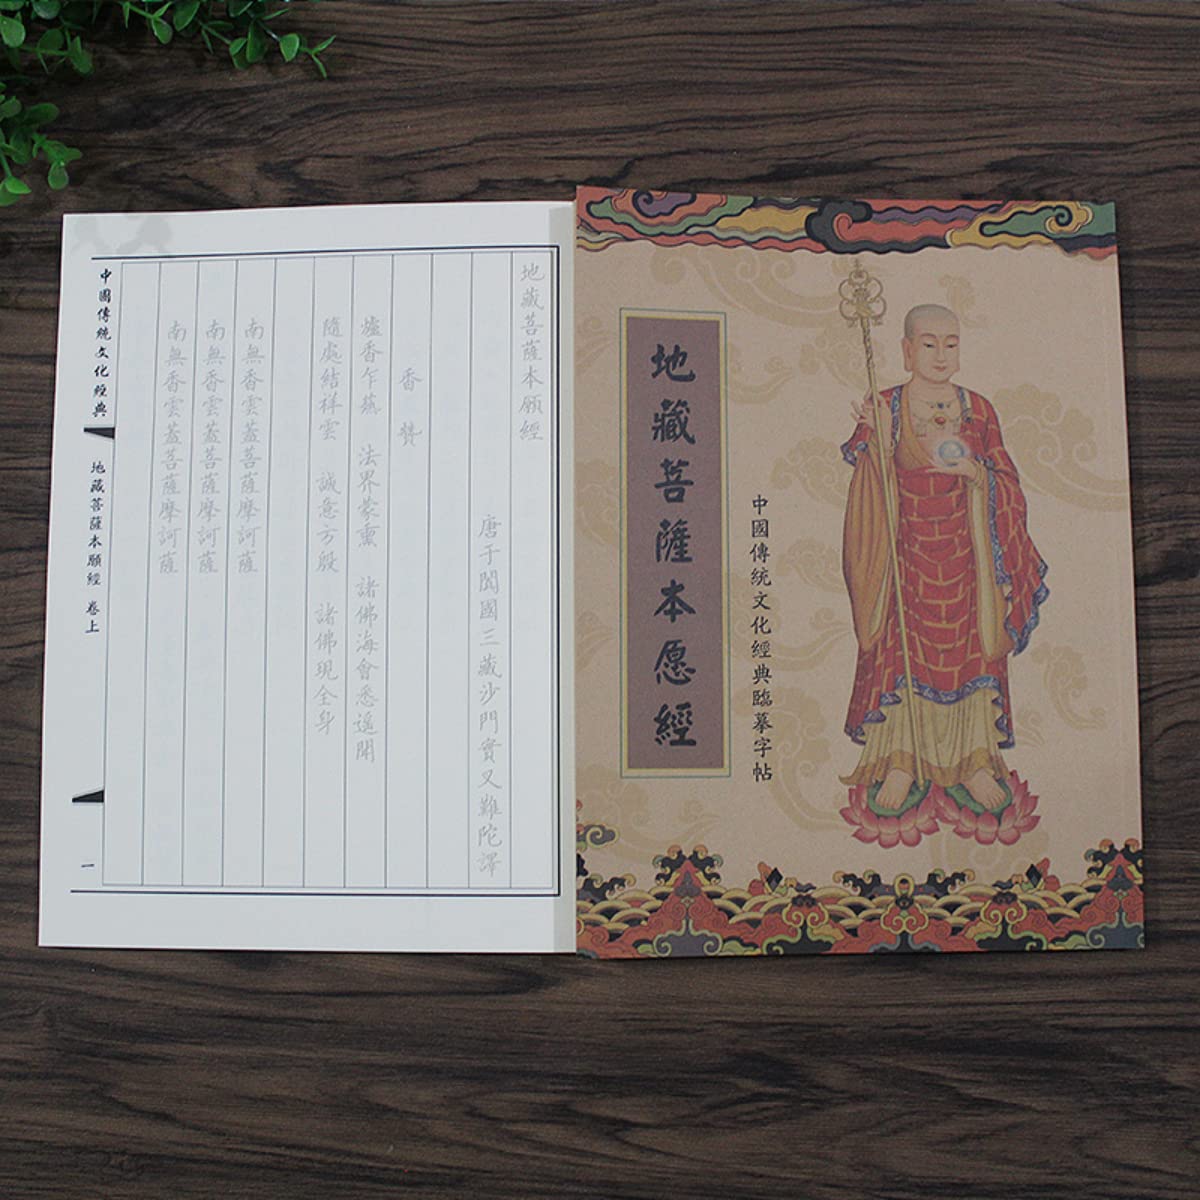 地藏菩薩本愿經
中國傳統文化經典臨摹字帖
地藏菩薩本願經
唐于闐國三藏沙門實叉難陀譯
香贊
爐香乍爇 法界蒙熏 諸佛海會悉遙聞
隨處結祥雲 誠意方殷 諸佛現全身
南無香雲蓋菩薩摩訶薩
南無香雲蓋菩薩摩訶薩
南無香雲蓋菩薩摩訶薩
中國傳統文化經典
地藏菩薩本願經 卷上
一